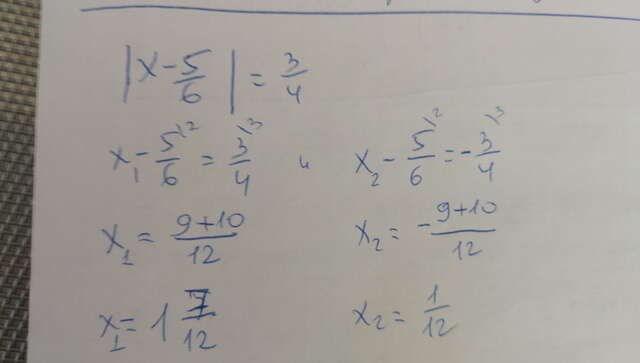 |x - 5/6| = 3/4
x₁ - 5\²/6 = 3\³/4 и x₂ - 5\²/6 = - 3\³/4
x₁ = 9+10/12 x₂ = -9+10/12
x₁ = 1 7/12 x₂ = 1/12